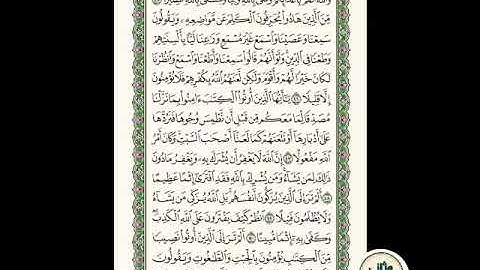 وَاللَّهُ أَعْلَمُ بِأَعْدَائِكُمْ وَكَفَىٰ بِاللَّهِ وَلِيًّا وَكَفَىٰ بِاللَّهِ نَصِيرًا ٤٥
مِّنَ الَّذِينَ هَادُوا يُحَرِّفُونَ الْكَلِمَ عَن مَّوَاضِعِهِ وَيَقُولُونَ
سَمِعْنَا وَعَصَيْنَا وَاسْمَعْ غَيْرَ مُسْمَعٍ وَرَاعِنَا لَيًّا بِأَلْسِنَتِهِمْ
وَطَعْنًا فِي الدِّينِ وَلَوْ أَنَّهُمْ قَالُوا سَمِعْنَا وَأَطَعْنَا وَاسْمَعْ وَانظُرْنَا
لَكَانَ خَيْرًا لَّهُمْ وَأَقْوَمَ وَلَٰكِن لَّعَنَهُمُ اللَّهُ بِكُفْرِهِمْ فَلَا يُؤْمِنُونَ
إِلَّا قَلِيلًا ٤٦ يَا أَيُّهَا الَّذِينَ أُوتُوا الْكِتَابَ آمِنُوا بِمَا نَزَّلْنَا
مُصَدِّقًا لِّمَا مَعَكُم مِّن قَبْلِ أَن نَّطْمِسَ وُجُوهًا فَنَرُدَّهَا
عَلَىٰ أَدْبَارِهَا أَوْ نَلْعَنَهُمْ كَمَا لَعَنَّا أَصْحَابَ السَّبْتِ وَكَانَ أَمْرُ
اللَّهِ مَفْعُولًا ٤٧ إِنَّ اللَّهَ لَا يَغْفِرُ أَن يُشْرَكَ بِهِ وَيَغْفِرُ مَا دُونَ
ذَٰلِكَ لِمَن يَشَاءُ وَمَن يُشْرِكْ بِاللَّهِ فَقَدِ افْتَرَىٰ إِثْمًا عَظِيمًا
٤٨ أَلَمْ تَرَ إِلَى الَّذِينَ يُزَكُّونَ أَنفُسَهُم بَلِ اللَّهُ يُزَكِّي مَن يَشَاءُ
وَلَا يُظْلَمُونَ فَتِيلًا ٤٩ انظُرْ كَيْفَ يَفْتَرُونَ عَلَى اللَّهِ الْكَذِبَ
وَكَفَىٰ بِهِ إِثْمًا مُّبِينًا ٥٠ أَلَمْ تَرَ إِلَى الَّذِينَ أُوتُوا نَصِيبًا
مِّنَ الْكِتَابِ يُؤْمِنُونَ بِالْجِبْتِ وَالطَّاغُوتِ وَيَقُولُونَ